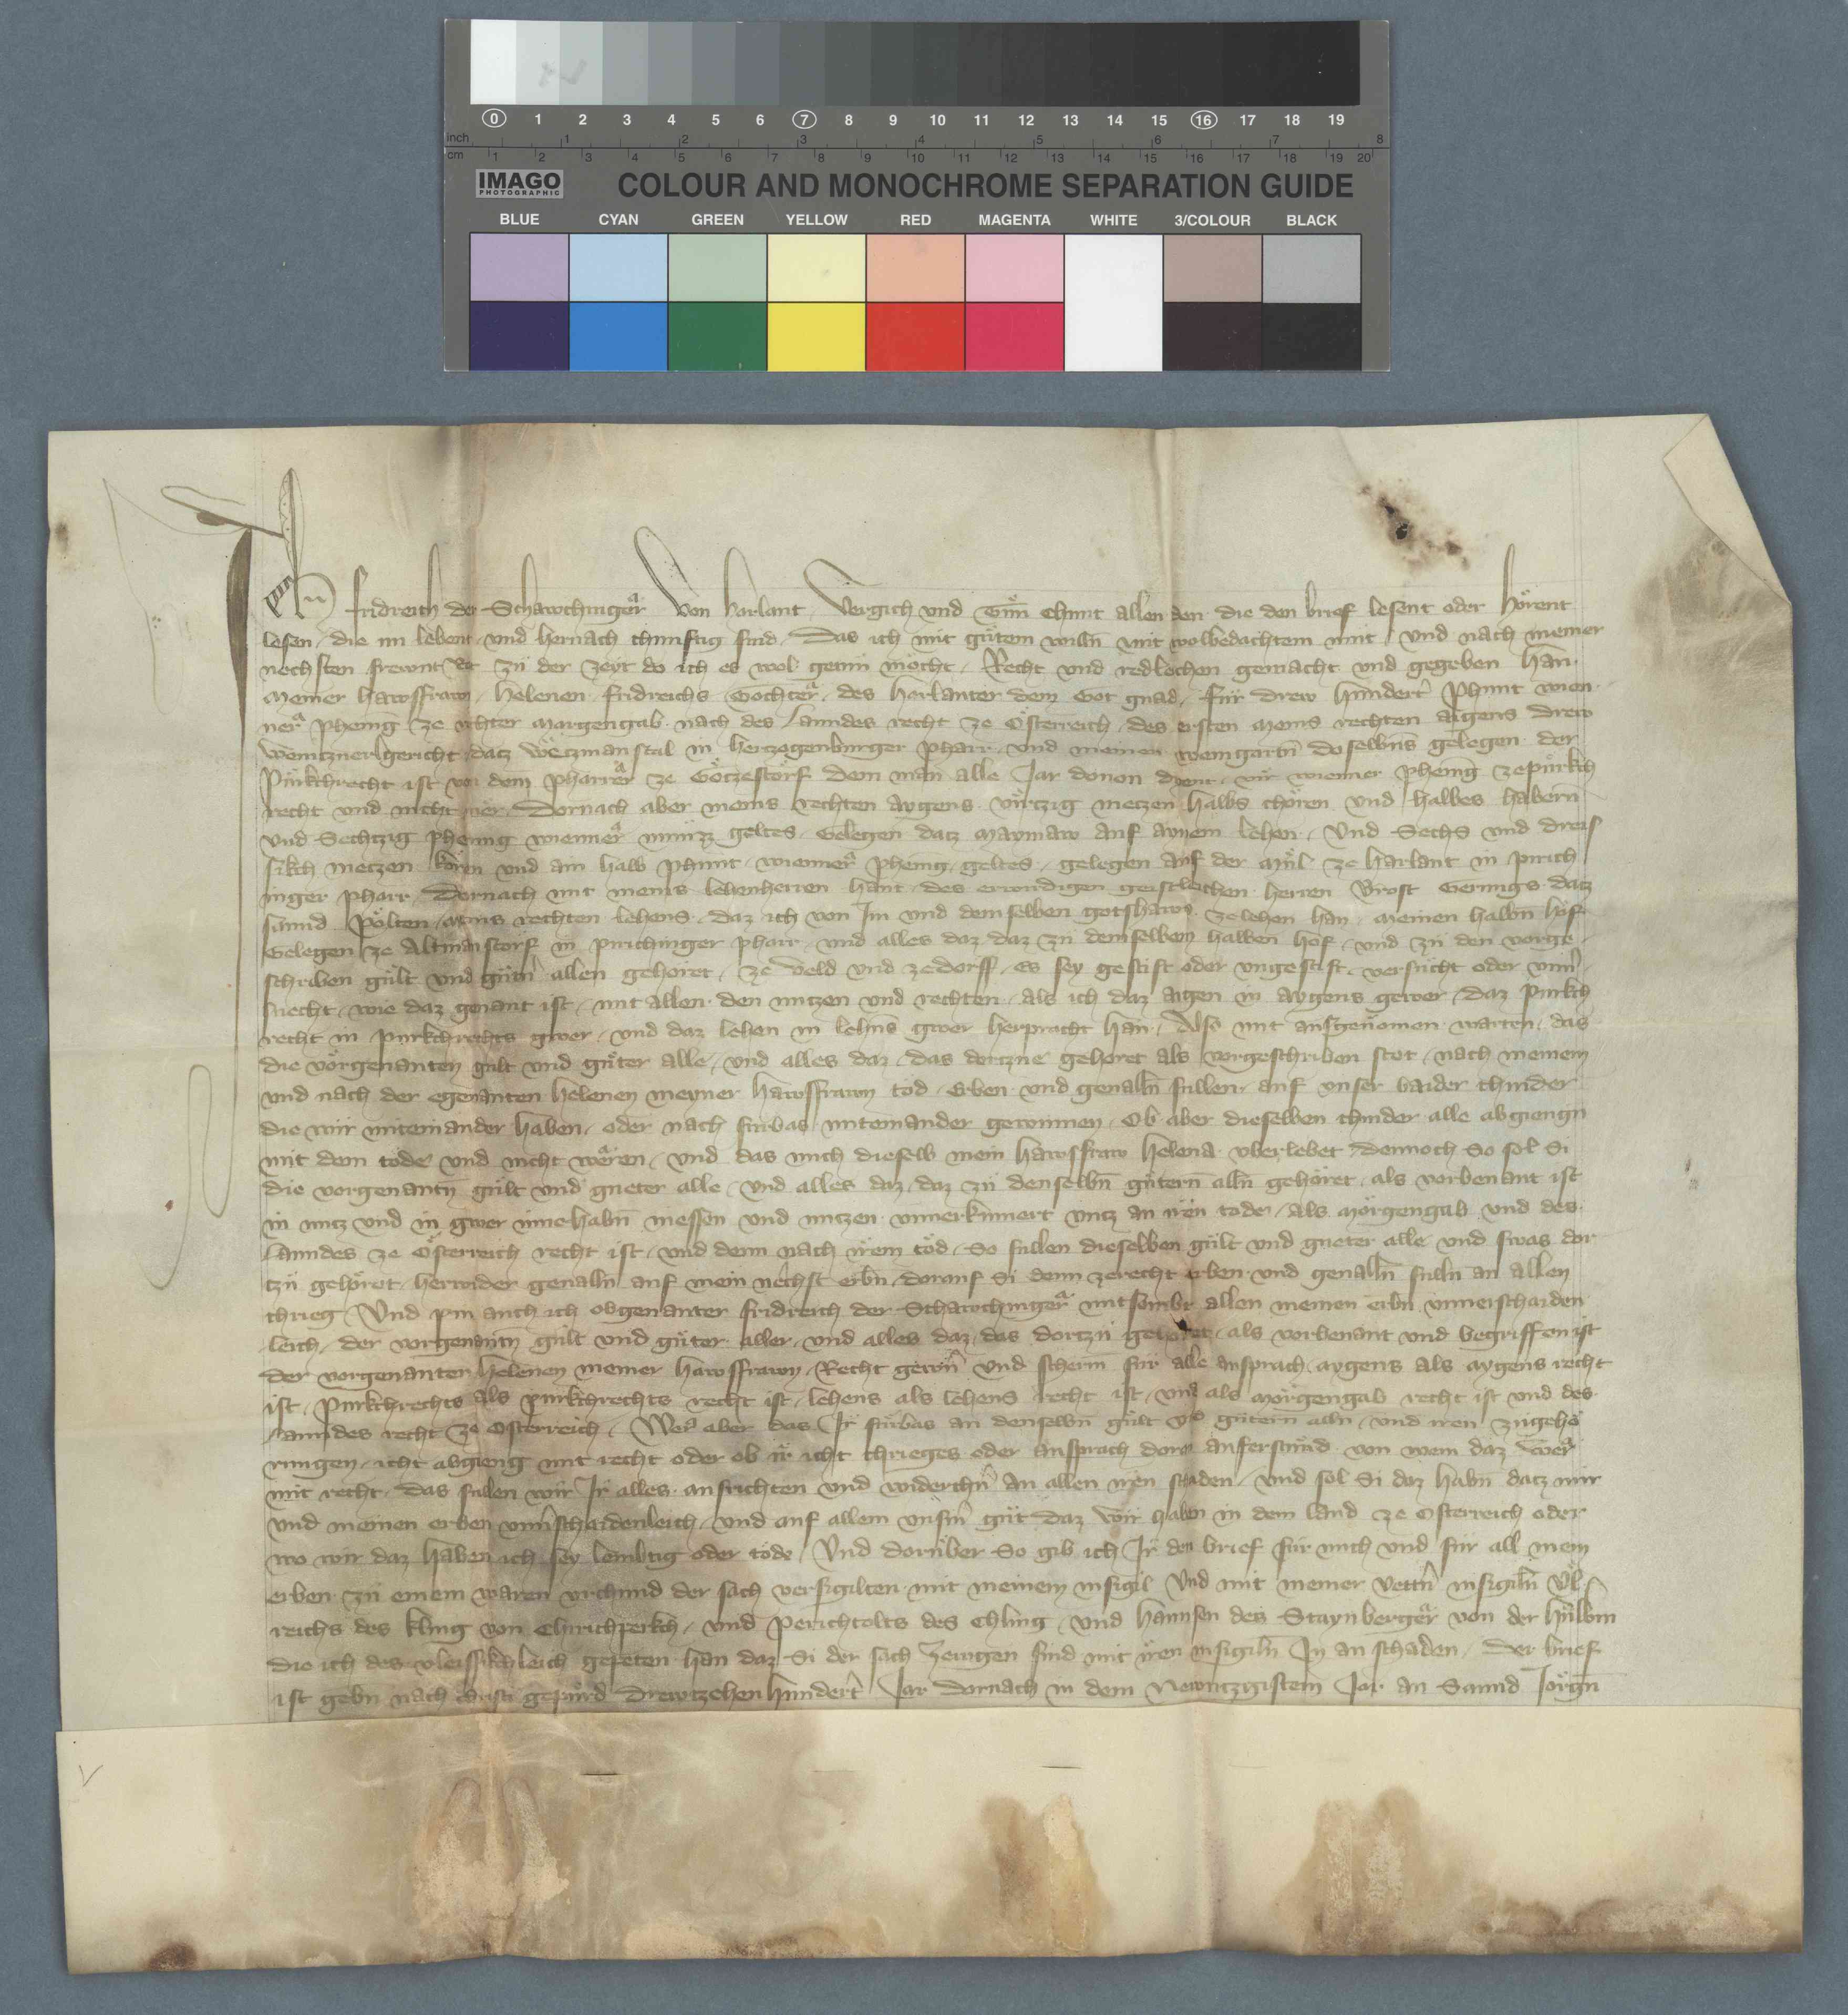 0 1 2 3 4 5 6 7 8 9 10 11 12 13 14 15 16 17 18 19
inch 1 2 3 4 5 6 7 8
cm 1 2 3 4 5 6 7 8 9 10 11 12 13 14 15 16 17 18 19 20
IMAGO PHOTOGRAPHIC COLOUR AND MONOCHROME SEPARATION GUIDE
BLUE CYAN GREEN YELLOW RED MAGENTA WHITE 3/COLOUR BLACK
Ich fridreich der Schawchinger von harlant vergich vnd Tun chunt allen den die den brief lesent oder hörent
lesen die nu lebent vnd hernach chunftig sind Das ich mit gutem willn mit wolbedachtem mut vnd nach meiner
nechsten frewnt Rat zu der zeyt do ich es wol getun mocht Recht vnd redlechen gemacht vnd gegeben han
meiner hawsfrawn helenen fridreichs Tochter des harlanter dem Got gnad für drew hundert phunt wien
ner phening ze rechter margengab nach des lanndes recht ze Österreich des ersten meins rechten aigens drew
datz Wetzmanstal in hertzogenburger pharr vnd meinen weingartn doselbns gelegen der
Purkchrecht ist von dem pharrer ze Götzestorf dem man alle Jar douon dient vir wienner phening ze purkch
recht vnd nicht mer Dornach aber meins rechten aygens virtzig metzen halbs choren vnd halbes habern
vnd Sechtzig phening wienner münzz geltes Gelegen datz maymaw auf aynem lehen Vnd Sechs vnd dreis
sikch metzen koren vnd ain halb phunt wienner phening geltes gelegen auf der mül ze harlant in pirich
inger pharr Dernach mit meins lehenherren hant des erwirdigen geistleichen herren Brost Gerungs datz
sannd Pölten meins rechten lehens daz ich von Im vnd demselben gotshaws ze lehen han meinen halbn hof
Gelegen ze Altmanstorf in pirichinger pharr vnd alles daz daz zu demselben halben hof vnd zu den vorge
schriben gült vnd gütn allen gehoret ze veld vnd ze dorff es sey gestift oder vngestift versucht oder vnu
suecht wie daz genant ist mit allen den nutzen vnd rechten als ich daz aigen in aygens gewer daz purkch
recht in purkchrechts gwer vnd daz lehen in lehns gwer herpracht han Also mit ausgenomen warten das
die vorgenanten gült vnd güter alle vnd alles daz das dortzue gehoret als vorgeschriben stet nach meinem
vnd nach der egenanten helenen meyner hawsfrawn tod erben vnd geualln sullen auf vnser baider chinder
die wir miteinander haben oder noch furbas miteinander gewinnen Ob aber dieselben chinder alle abgiengn
mit dem tode vnd nicht weren vnd das mich dieselb mein hawsfraw helena vberlebet dennoch So sol Si
die vorgenantn gült vnd gueter alle vnd alles daz daz zu denselbn gütern alln gehöret als vorbenant ist
in nutz vnd in gwer innehabn niessen vnd nutzen vnuerkumert vntz an iren tode als morgengab vnd des
lanndes ze Österreich recht ist vnd denn nach irem tod So sullen dieselben gült vnd gueter alle vnd swas dar
tzu gehöret herwider geualln auf mein nechst erbn dorauf Si denn zerecht erben vnd geualln sulln an allen
chrieg Vnd pin auch ich obgenanter fridreich der Schawchinger mitsambt allen meinen erbn vnuerschaiden
leich der vorgenantn gült vnd güter aller vnd alles daz das dortzu gehoret als vorbenant vnd begriffen ist
der vorgenanten helenen meiner hawsfrawn Recht gewer vnd scherm für alle ansprach aygens als aygens recht
ist Purkchrechts als purkchrechts recht ist lehens als lehens recht ist vnd als morgengab recht ist vnd des
lanndes recht ze Österreich Wer aber das Ir fürbas an denselbn gült vnd gütern alln vnd iren zugehö
rungen icht abgieng mit recht oder ob ir icht chrieges oder ansprach doran auferstund von wem daz wer
mit recht das sullen wir Ir alles ausrichten vnd widerchern An allen iren schaden vnd sol Si daz habn datz mir
vnd meinen erben vnuerschaidenleich vnd auf allem vnserm gut daz wir haben in dem land ze Osterreich oder
wo wir daz haben ich sey lembtig oder tode Vnd dorüber So gib ich Ir den brief für mich vnd für all mein
erben zu einem waren vrchund der sach versigilten mit meinem insigil Vnd mit meiner vettern insigiln Vl
reichs des kling von Chirichperkch vnd Perichtolts des Chling vnd hannsen des Staynberger von der hülbm
die ich des vleissikchleich gepeten han daz Si der sach zewgen sind mit iren insigiln In an schaden Der brief
ist gebn nach christi gepürd drewtzehenhundert Jar dornach in dem Newntzgistem Jar An Sannd Jörgn